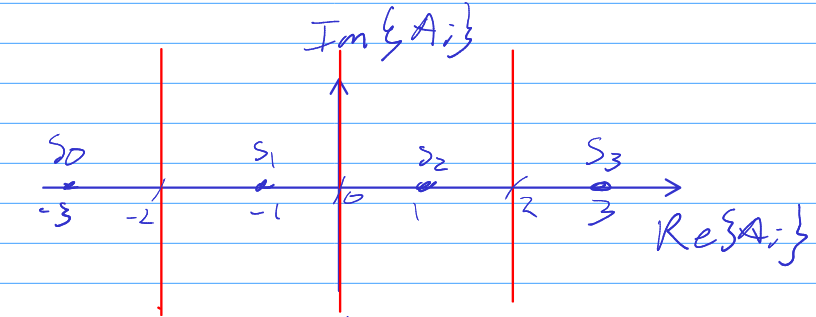 Im{Ai}
S0 S1 S2 S3
-3 -2 -1 0 1 2 3
Re{Ai}